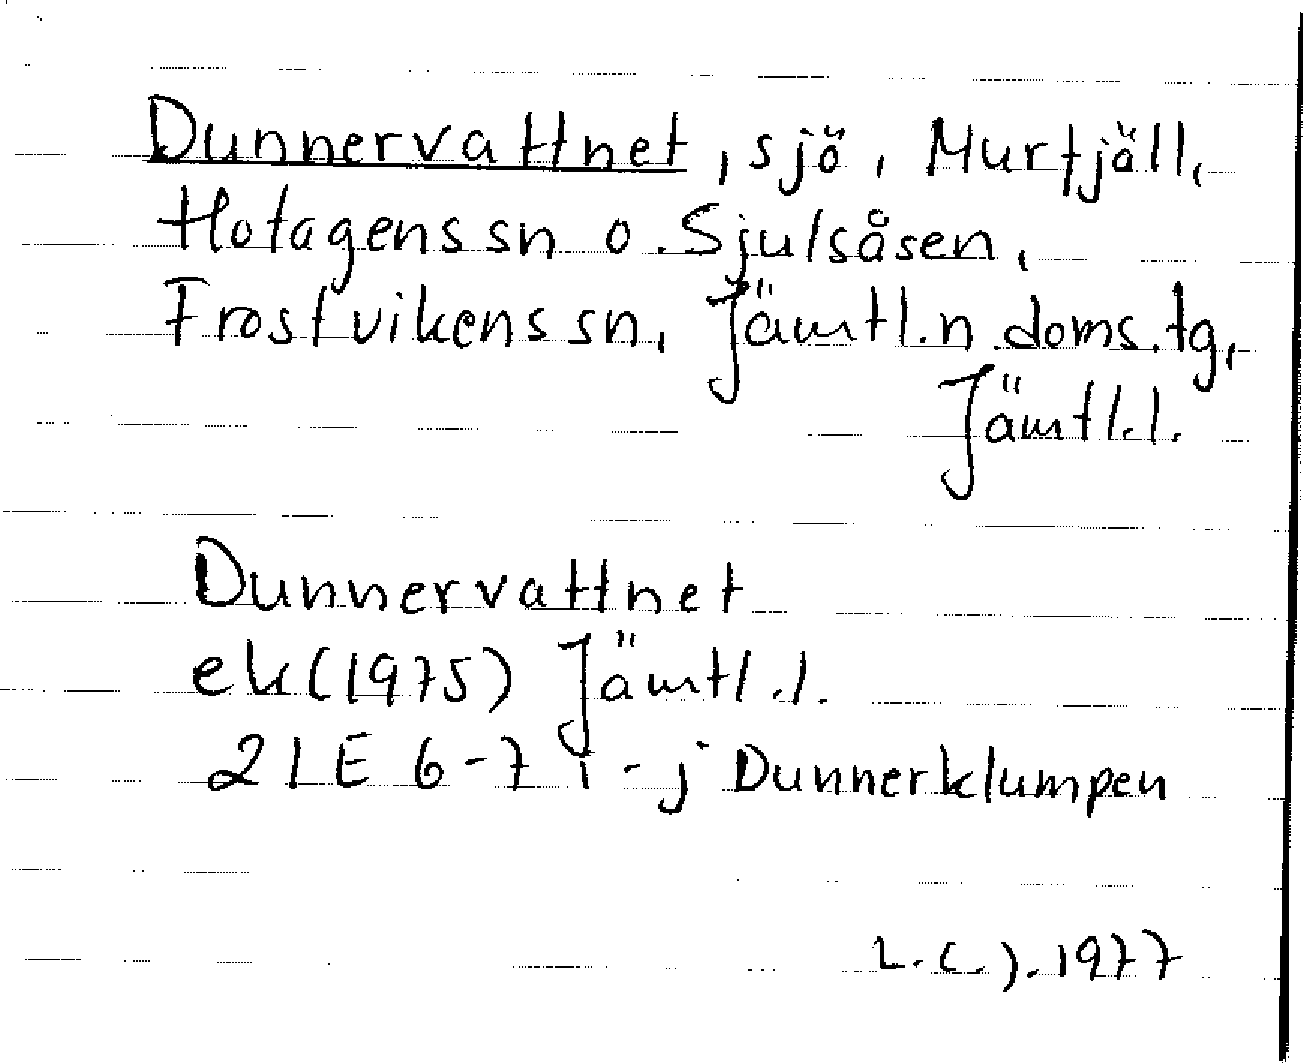 Dunnervattnet, sjö, Murfjäll,
Hotagens sn o. Sjulsåsen,
Frostvikens sn, Jämtl.n doms.tg,
Jämtl.l.
Dunnervattnet
ek (1975) Jämtl.l.
21E 6-7 i-j Dunnerklumpen
1977